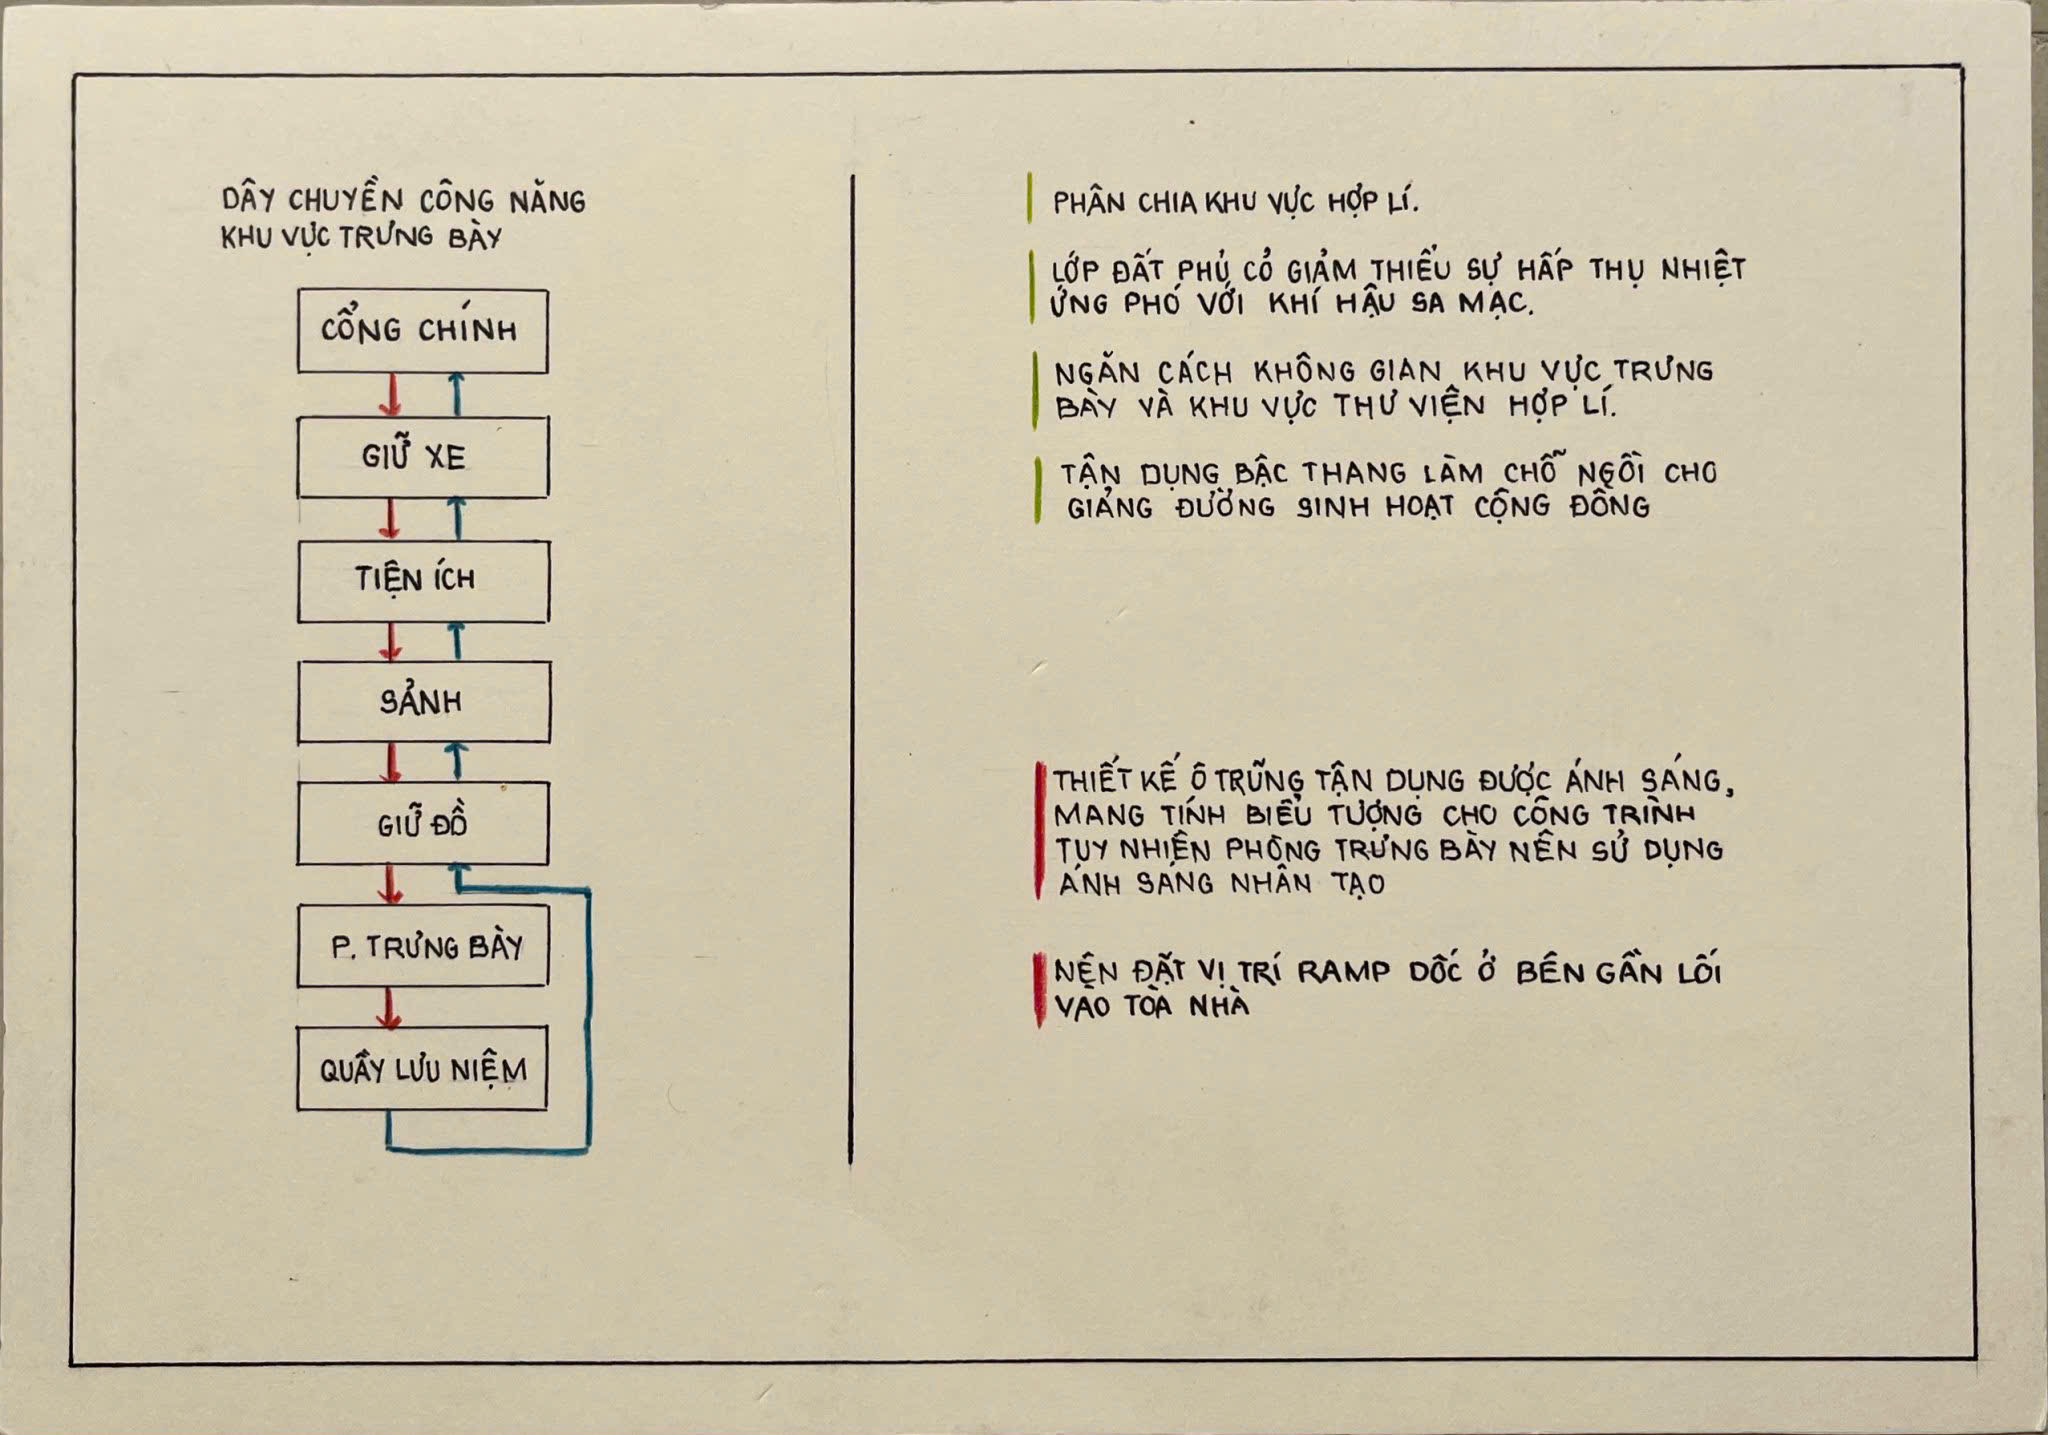 DÂY CHUYỀN CÔNG NĂNG
KHU VỰC TRƯNG BÀY
CỔNG CHÍNH
GIỮ XE
TIỆN ÍCH
SẢNH
GIỮ ĐỒ
P. TRƯNG BÀY
QUẦY LƯU NIỆM
PHÂN CHIA KHU VỰC HỢP LÍ.
LỚP ĐẤT PHỦ CỎ GIẢM THIỂU SỰ HẤP THỤ NHIỆT
ỨNG PHÓ VỚI KHÍ HẬU SA MẠC.
NGĂN CÁCH KHÔNG GIAN KHU VỰC TRƯNG
BÀY VÀ KHU VỰC THƯ VIỆN HỢP LÍ.
TẬN DỤNG BẬC THANG LÀM CHỖ NGỒI CHO
GIẢNG ĐƯỜNG SINH HOẠT CỘNG ĐỒNG
THIẾT KẾ Ô TRŨNG TẬN DỤNG ĐƯỢC ÁNH SÁNG,
MANG TÍNH BIỂU TƯỢNG CHO CÔNG TRÌNH
TUY NHIÊN PHÒNG TRƯNG BÀY NÊN SỬ DỤNG
ÁNH SÁNG NHÂN TẠO
NÊN ĐẶT VỊ TRÍ RAMP DỐC Ở BÊN GẦN LỐI
VÀO TÒA NHÀ